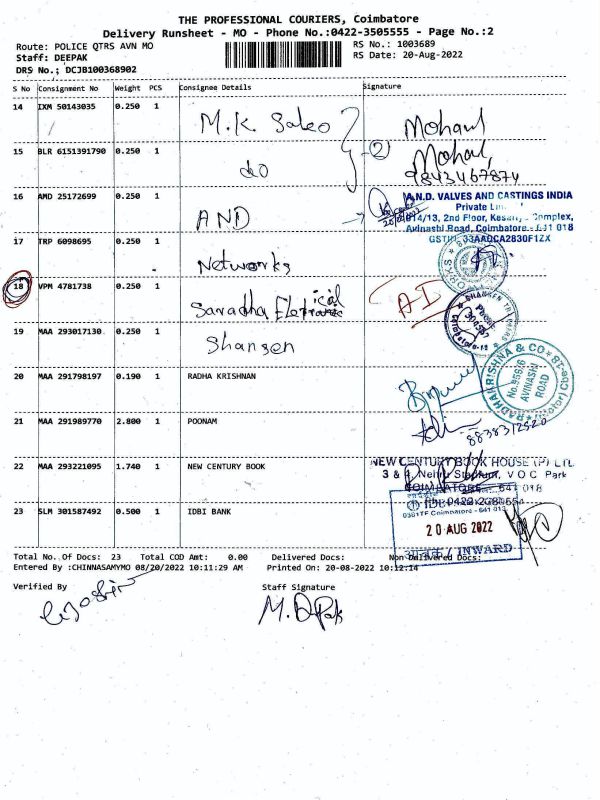 THE PROFESSIONAL COURIERS, Coimbatore
Delivery Runsheet - MO - Phone No.:0422-3505555 - Page No.:2
Route: POLICE QTRS AVN MO
RS No.: 1003689
Staff: DEEPAK
RS Date: 20-Aug-2022
DRS No.; DCJB100368902
S No Consignment No Weight PCS Consignee Details Signature
14 IXM 50143035 0.250 1 M.K. Sales Mohan
15 BLR 6151391790 0.250 1 do 2 Mohan
9843467874
16 AMD 25172699 0.250 1 AND
A.N.D. VALVES AND CASTINGS INDIA
Private
614/13, 2nd Floor, Complex,
Avinashi Road, Coimbatore - 641 018
GSTIN 33AAOCA2830F1ZX
17 TRP 6098695 0.250 1 Networks
18 VPM 4781738 0.250 1 Saradha AI
19 MAA 293017130 0.250 1
20 MAA 291798197 0.190 1 RADHA KRISHNAN
RADHAKRISHNA & CO
AVINASHI
ROAD
21 MAA 291989770 2.800 1 POONAM
8838312520
22 MAA 293221095 1.740 1 NEW CENTURY BOOK
NEW CENTURY BOOK HOUSE (P) LTD.
3 & 4, Nehru Stadium, V O C Park
COIMBATORE - 641 018
23 SLM 301587492 0.500 1 IDBI BANK
IDBI
Coimbatore - 641 018
20 AUG 2022
/ INWARD
Total No. Of Docs: 23 Total COD Amt: 0.00 Delivered Docs: Non Delivered Docs:
Entered By :CHINNASAMYMO 08/20/2022 10:11:29 AM Printed On: 20-08-2022 10:12:14
Verified By Staff Signature